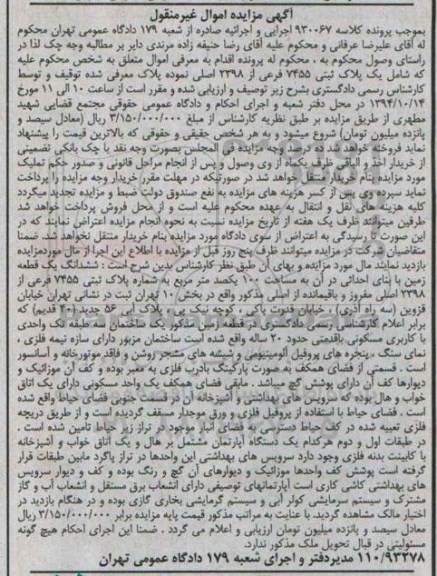 آگهی مزایده اموال غیرمنقول
بموجب پرونده کلاسه ۹۳۰۰۶۷ اجرایی و اجرائیه صادره از شعبه ۱۷۹ دادگاه عمومی تهران محکوم
له آقای علیرضا عرفانی و محکوم علیه آقای رضا حنیفه زاده مرندی دایر بر مطالبه وجه چک لذا در
راستای وصول محکوم به ، محکوم له پرونده اقدام به معرفی اموال متعلق به شخص محکوم علیه
که شامل یک پلاک ثبتی ۷۴۵۵ فرعی از ۲۳۹۸ اصلی نموده پلاک معرفی شده توقیف و توسط
کارشناس رسمی دادگستری بشرح زیر توصیف و ارزیابی شده و مقرر است از ساعت ۱۰ الی ۱۱ مورخ
۱۳۹۴/۱۰/۱۴ در محل دفتر شعبه و اجرای احکام و دادگاه عمومی حقوقی مجتمع قضایی شهید
مطهری از طریق مزایده بر طبق نظریه کارشناس از مبلغ ۳/۱۵۰/۰۰۰/۰۰۰ ریال (معادل سیصد و
پانزده میلیون تومان) شروع میشود و به هر شخص حقیقی و حقوقی که بالاترین قیمت را پیشنهاد
نماید فروخته خواهد شد ده درصد وجه مزایده فی المجلس بصورت وجه نقد یا چک بانکی تضمینی
از خریدار اخذ و الباقی ظرف یکماه از وی وصول و پس از انجام مراحل قانونی و صدور حکم تملیک
مورد مزایده بنام خریدار منتقل خواهد شد در صورتیکه در مهلت مقرر خریدار وجه مزایده را پرداخت
نماید سپرده وی پس از کسر هزینه های مزایده به نفع صندوق دولت ضبط و مزایده تجدید میگردد
کلیه هزینه های نقل و انتقال به عهده محکوم علیه است و از محل فروش پرداخت خواهد شد
طرفین میتوانند ظرف یک هفته از تاریخ مزایده نسبت به نحوه انجام مزایده اعتراض نمایند که در
این صورت تا رسیدگی به اعتراض از سوی دادگاه مورد مزایده بنام خریدار منتقل نخواهد شد. ضمنا
متقاضیان شرکت در مزایده میتوانند ظرف پنج روز قبل از مزایده با اطلاع این اجرا از مال موردمزایده
بازدید نمایند مال مورد مزایده و بهای آن طبق نظر کارشناس بدین شرح است : ششدانگ یک قطعه
زمین با بنای احداثی در آن به مساحت ۱۰۰ یکصد متر مربع به شماره پلاک ثبتی ۷۴۵۵ فرعی از
۲۳۹۸ اصلی مفروز و باقیمانده از اصلی مذکور واقع در بخش ۱۰ تهران ثبت در نشانی تهران خیابان
قزوین (سه راه آذری) ، خیابان قدرت پاکی ، کوچه نیک پی ، پلاک ۵۶ جدید (۴۰ قدیم) که
برابر اعلام کارشناس رسمی دادگستری در قطعه زمین مذکور یک ساختمان سه طبقه تک واحدی
با کاربری مسکونی باقدمتی حدود ۲۰ ساله واقع شده است ساختمان مزبور دارای سازه نیمه فلزی ،
نمای سنگ ، پنجره های پروفیل آلومینیومی و شیشه های مشجر روشن و فاقد موتورخانه و آسانسور
است . قسمتی از فضای همکف به صورت پارکینگ بادرب فلزی به معبر بوده و کف آن موزائیک و
دیوارها کف آن دارای پوشش گچ میباشد . مابقی فضای همکف یک واحد مسکونی دارای یک اتاق
خواب و هال بوده که سرویس های بهداشتی و آشپزخانه آن در قسمت جنوبی فضای حیاط واقع شده
است . فضای حیاط با استفاده از پروفیل فلزی و ورق موجدار مسقف گردیده است و از طریق دریچه
فلزی تعبیه شده در کف حیاط دسترسی به فضای انبار موجود در تراز زیر حیاط تامین شده است .
در طبقات اول و دوم هرکدام یک دستگاه آپارتمان مشتمل بر هال و یک اتاق خواب و آشپزخانه
با کابینت بدنه فلزی وجود دارد سرویس های بهداشتی این واحدها در تراز پاگرد مابین طبقات قرار
گرفته است پوشش کف واحدها موزائیک و دیوارهای آن گچ و رنگ بوده و کف و دیوار سرویس
های بهداشتی کاشی کاری است آپارتمانهای توصیفی دارای انشعاب برق مستقل و انشعاب آب و گاز
مشترک و سیستم سرمایشی کولر آبی و سیستم گرمایشی بخاری گازی بوده و در هنگام بازدید در
اختیار مالک مشاهده گردید. با عنایت به مراتب مذکور قیمت پایه مزایده برابر ۳/۱۵۰/۰۰۰/۰۰۰ ریال
معادل سیصد و پانزده میلیون تومان ارزیابی و اعلام می گردد . ضمنا این اجرای احکام هیچ گونه
مسئولیتی در قبال تحویل ملک مذکور ندارد.
۱۱۰/۹۳۲۷۸ مدیردفتر و اجرای شعبه ۱۷۹ دادگاه عمومی تهران